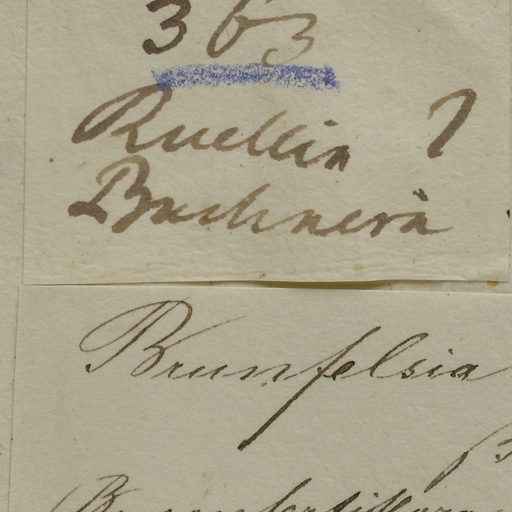 363
Ruellia ?
Buchnera
Brunfelsia